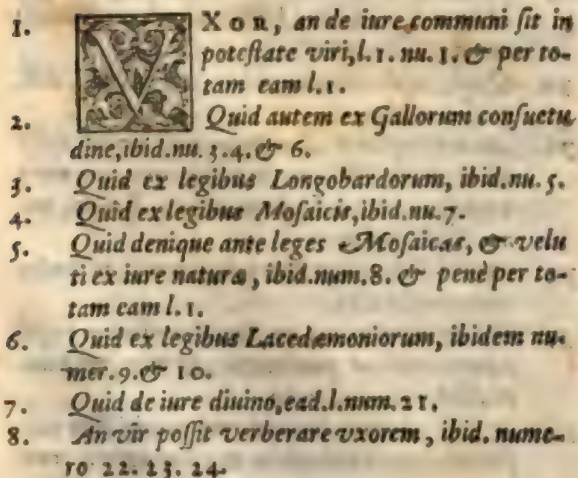 1. VXOR, an de iure communi ſit in
poteſtate viri, l. 1. nu. 1. & per to-
tam eam l. 1.
2. Quid autem ex Gallorum conſuetu
dine, ibid. nu. 3. 4. & 6.
3. Quid ex legibus Longobardorum, ibid. nu. 5.
4. Quid ex legibus Moſaicis, ibid. nu. 7.
5. Quid denique ante leges Moſaicas, & velu
ti ex iure naturæ, ibid. num. 8. & penè per to-
tam eam l. 1.
6. Quid ex legibus Lacedæmoniorum, ibidem nu-
mer. 9. & 10.
7. Quid de iure diuino, ead. l. num. 21.
8. An vir poſſit verberare vxorem, ibid. nume-
ro 22. 23. 24.